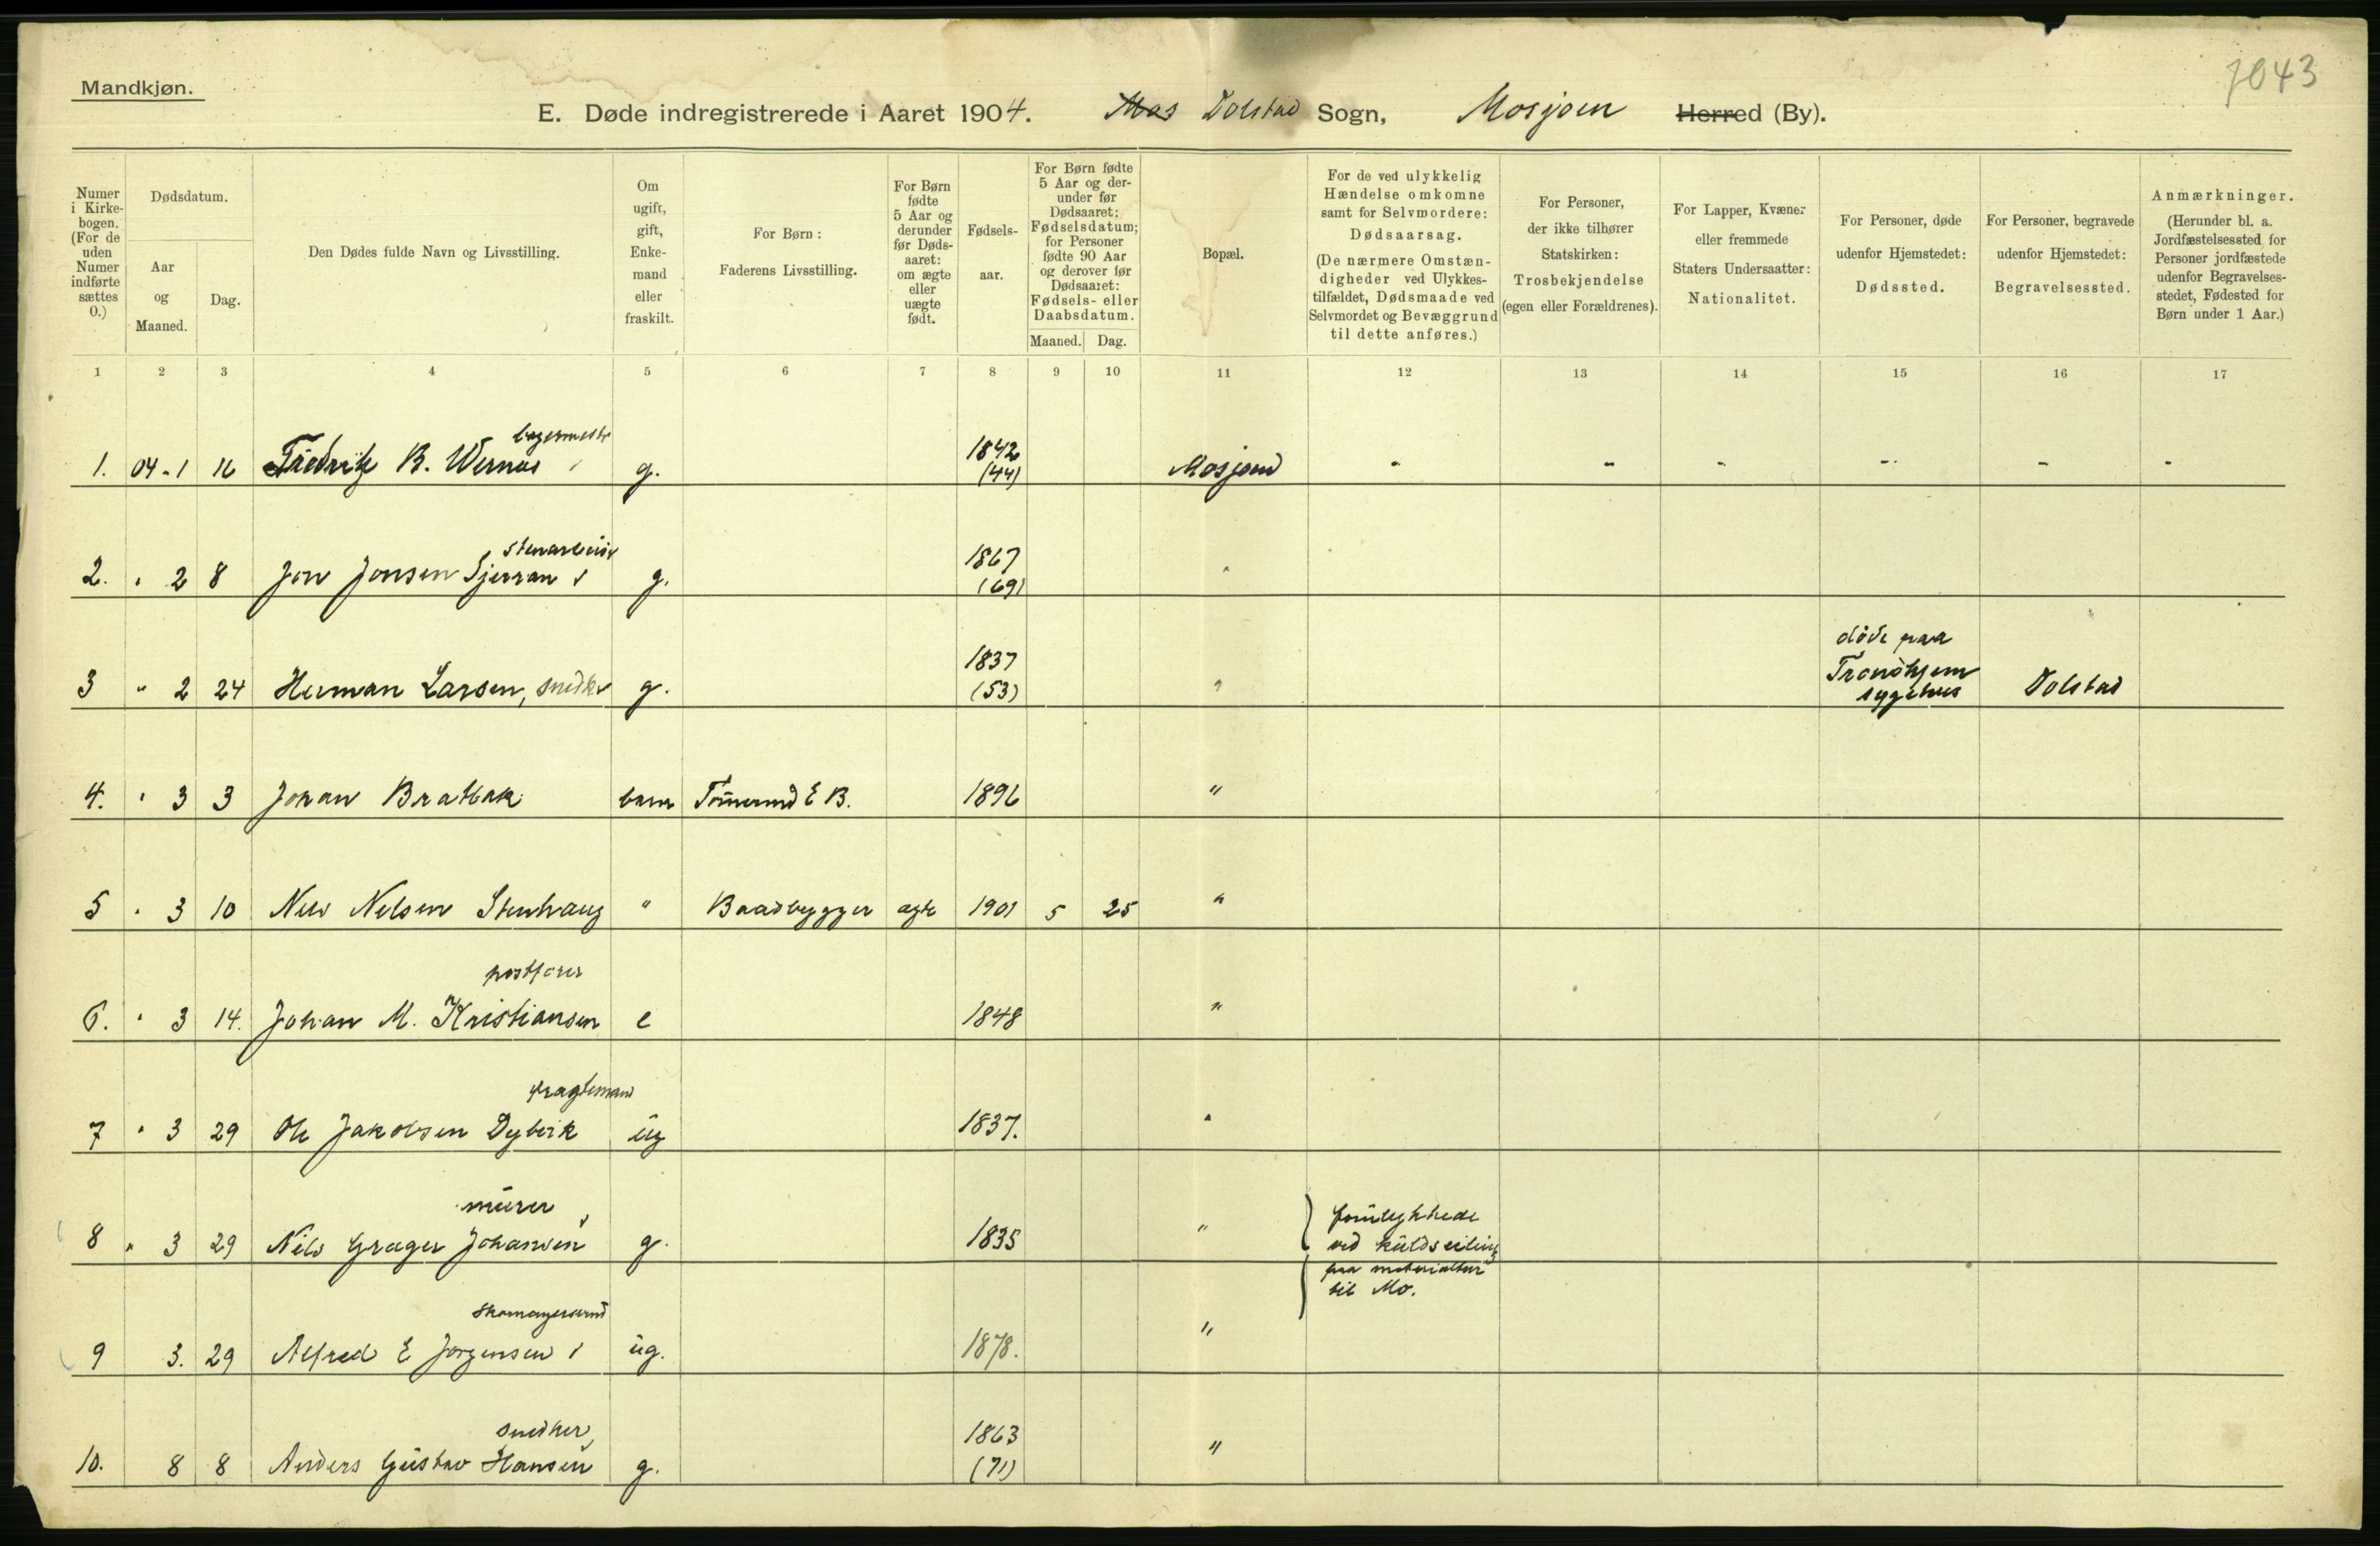 7043
Mandkjøn.
E. Døde indregistrerede i Aaret 1904. Mos Dolstad Sogn, Mosjøen Herred (By).
Numer i Kirkebogen. (For de uden Numer indførte sættes 0.)
Dødsdatum.
Aar og Maaned.
Dag.
Den Dødes fulde Navn og Livsstilling.
Om ugift, gift, Enkemand eller fraskilt.
For Børn:
Faderens Livsstilling.
For Børn fødte 5 Aar og derunder før Dødsaaret: om ægte eller uægte født.
Fødselsaar.
For Børn fødte 5 Aar og derunder før Dødsaaret: Fødselsdatum; for Personer fødte 90 Aar og derover før Dødsaaret: Fødsels- eller Daabsdatum.
Maaned. Dag.
Bopæl.
For de ved ulykkelig Hændelse omkomne samt for Selvmordere: Dødsaarsag.
(De nærmere Omstændigheder ved Ulykkestilfældet, Dødsmaade ved Selvmordet og Bevæggrund til dette anføres.)
For Personer, der ikke tilhører Statskirken: Trosbekjendelse (egen eller Forældrenes).
For Lapper, Kvæner eller fremmede Staters Undersaatter: Nationalitet.
For Personer, døde udenfor Hjemstedet: Dødssted.
For Personer, begravede udenfor Hjemstedet: Begravelsessted.
Anmærkninger.
(Herunder bl. a. Jordfæstelsessted for Personer jordfæstede udenfor Begravelsesstedet, Fødested for Børn under 1 Aar.)
1 2 3 4 5 6 7 8 9 10 11 12 13 14 15 16 17
bagermester
1. 04-1 16 Fredrik B. g. 1842 (44) Mosjøen - - - - - -
stenarbeider
2. " 2 8 Jon Jonsen g. 1867 (69) "
3 " 2 24 Herman Larsen, snedker g. 1837 (53) " døde paa Trondhjem sygehus Dolstad
4. " 3 3 Johan Brattbak barn E B. 1896 "
5 " 3 10 Nils Nilsen Stenhaug " Baadbygger ægte 1901 5 25 "
postfører
6. " 3 14. Johan M. Kristiansen e 1848 "
fragtemand
7 " 3 29 Ole Jakobsen Dybvik ug 1837. "
murer
8 " 3 29 Nils Grøger Johansen g. 1835 " forulykkede ved kuldseiling
paa til Mo.
skomagersvend
9 3. 29 Alfred E Jørgensen ug. 1878. "
snedker,
10. 8 8 Anders Gustav Hansen g. 1863 (71) "